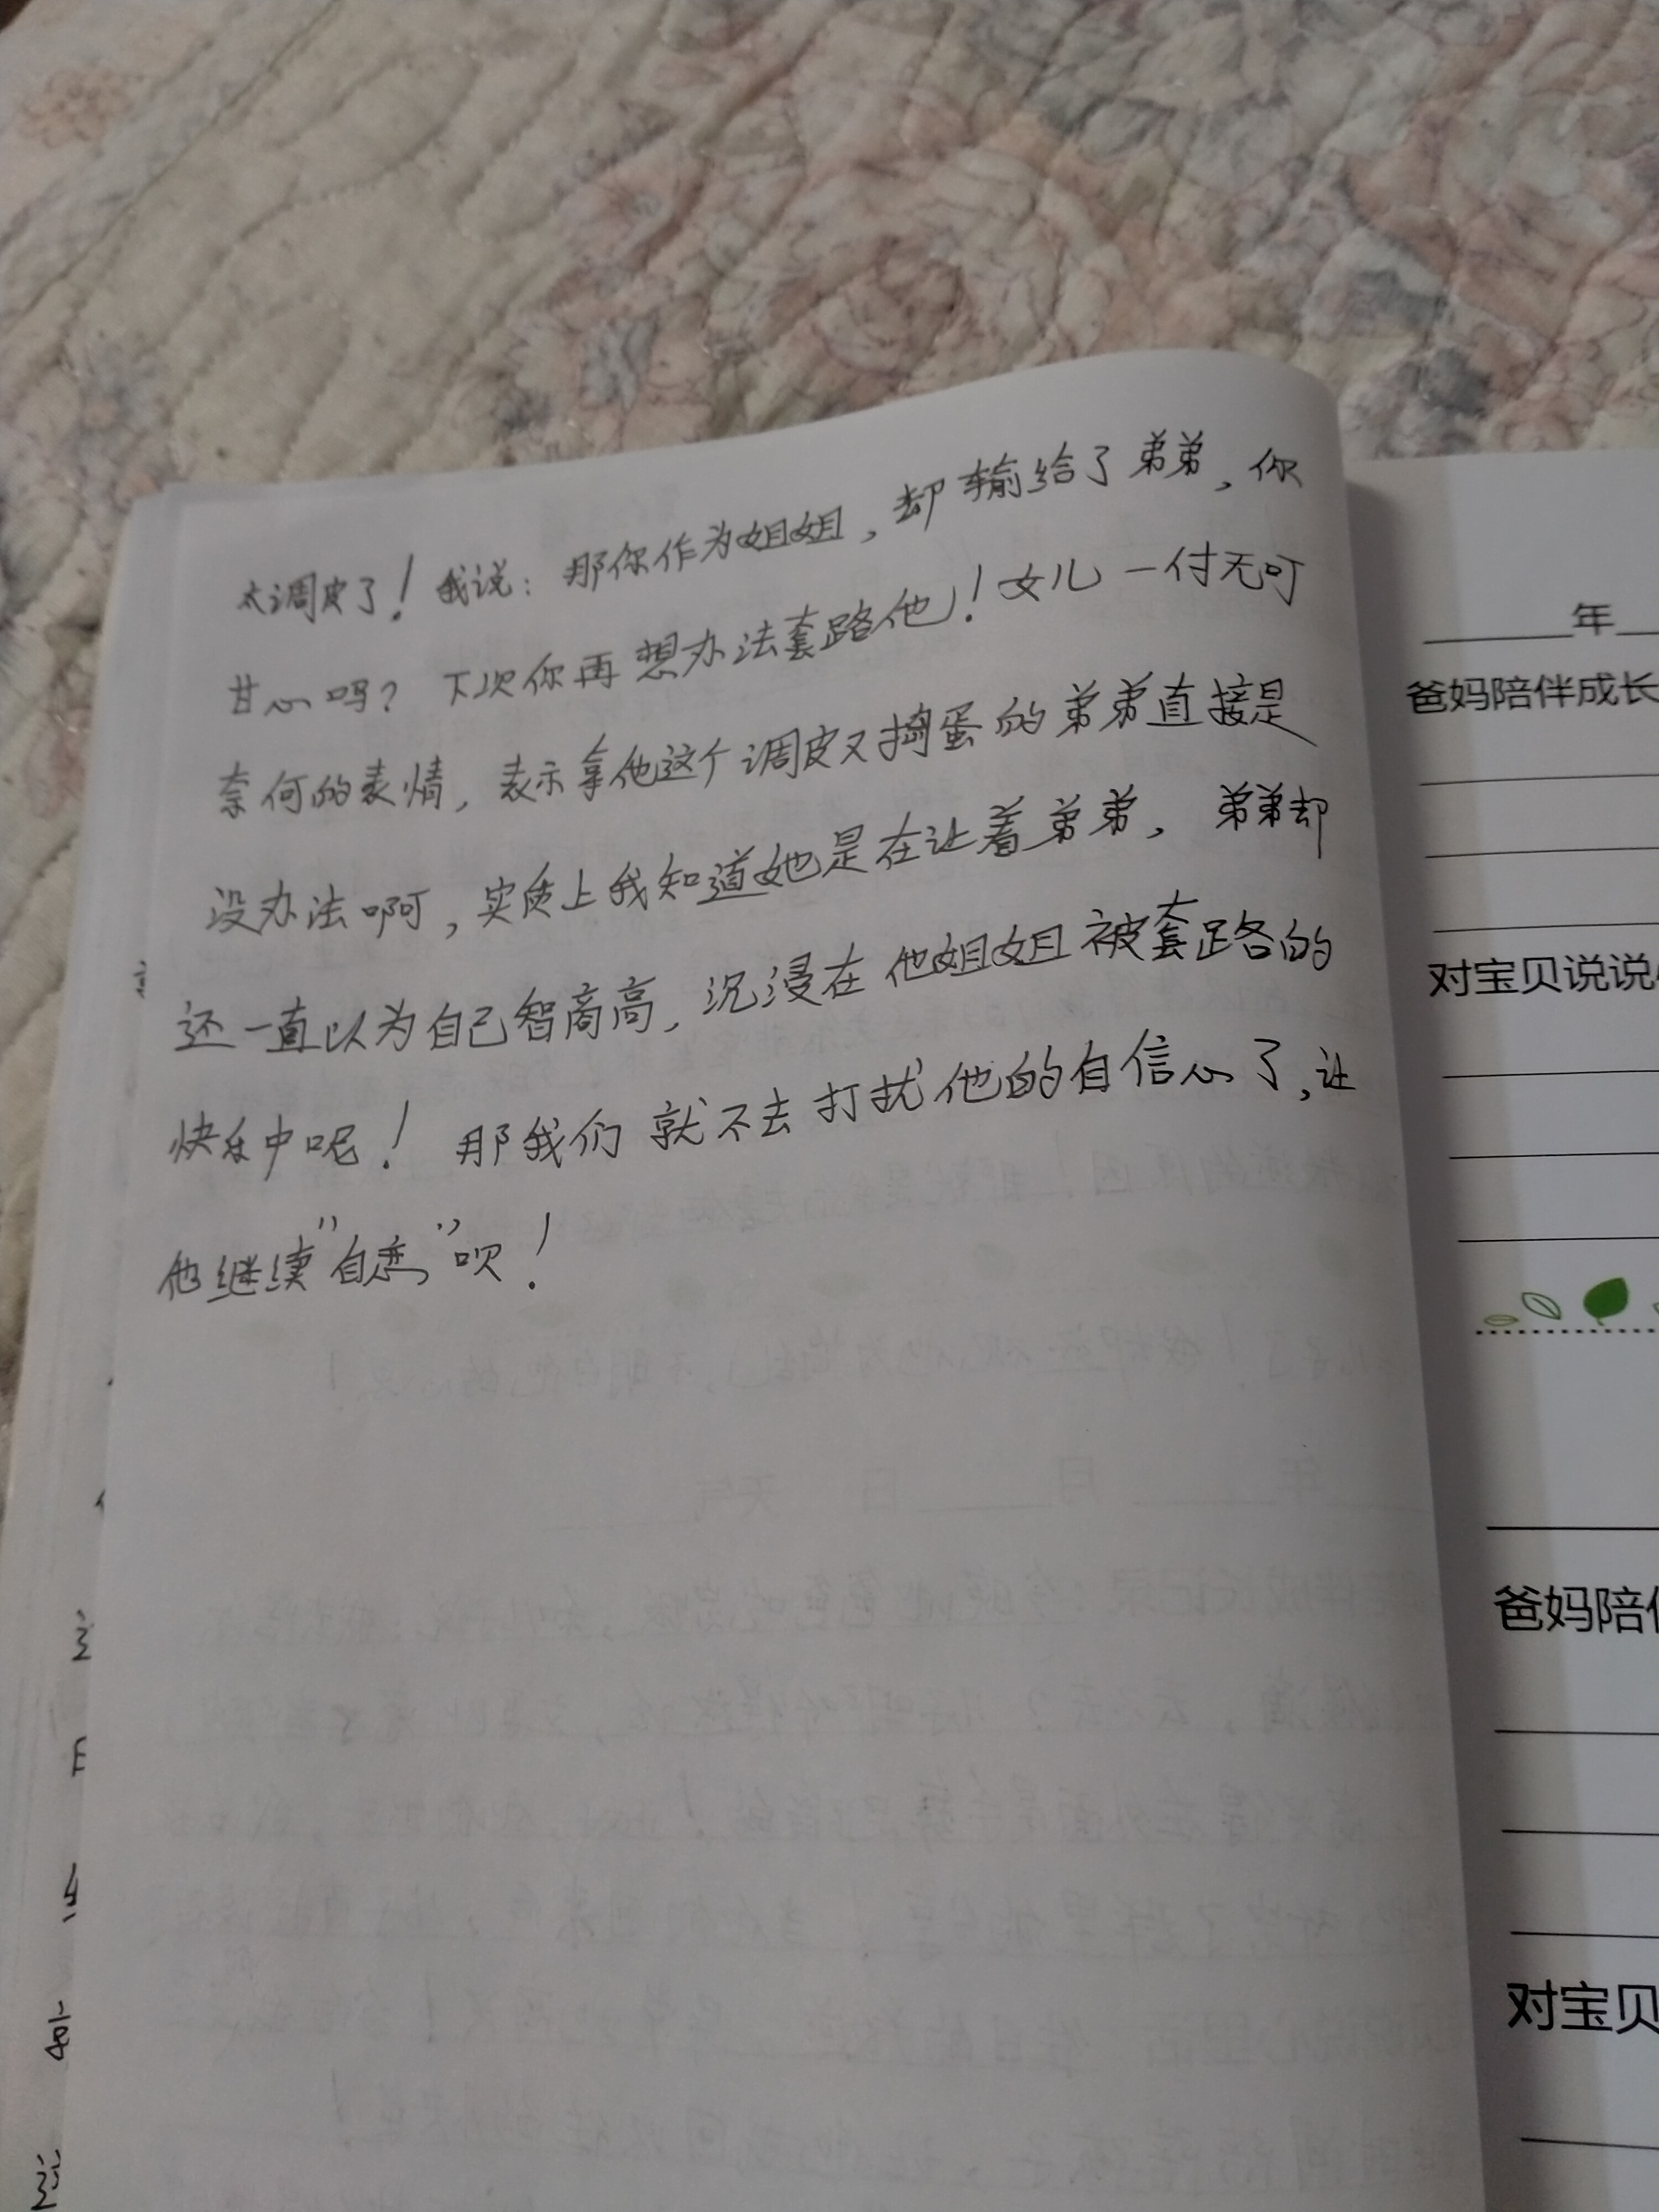 太调皮了！我说：那你作为姐姐，却输给了弟弟，你
甘心吗？下次你再想办法套路他！女儿一付无可
奈何的表情，表示拿他这个调皮又捣蛋的弟弟直接是
没办法啊，实质上我知道她是在让着弟弟，弟弟却
还一直以为自己智商高，沉浸在他姐姐被套路的
快乐中呢！那我们就不去打扰他的自信心了，让
他继续"自恋"呗！
年
爸妈陪伴成长
对宝贝说说
爸妈陪伴
对宝贝